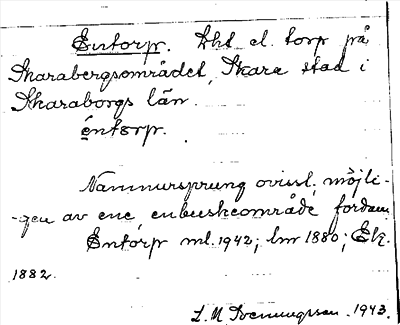 Entorp. Lht el. torp på
Skarabergsområdet, Skara stad i
Skaraborgs län.
éntorp.
Namnursprung ovisst, möjli-
-gen av ene, enbuskeområde fordom
Entorp ml. 1942; lm 1880; Ek.
1882.
L. M Svenungsson. 1943.